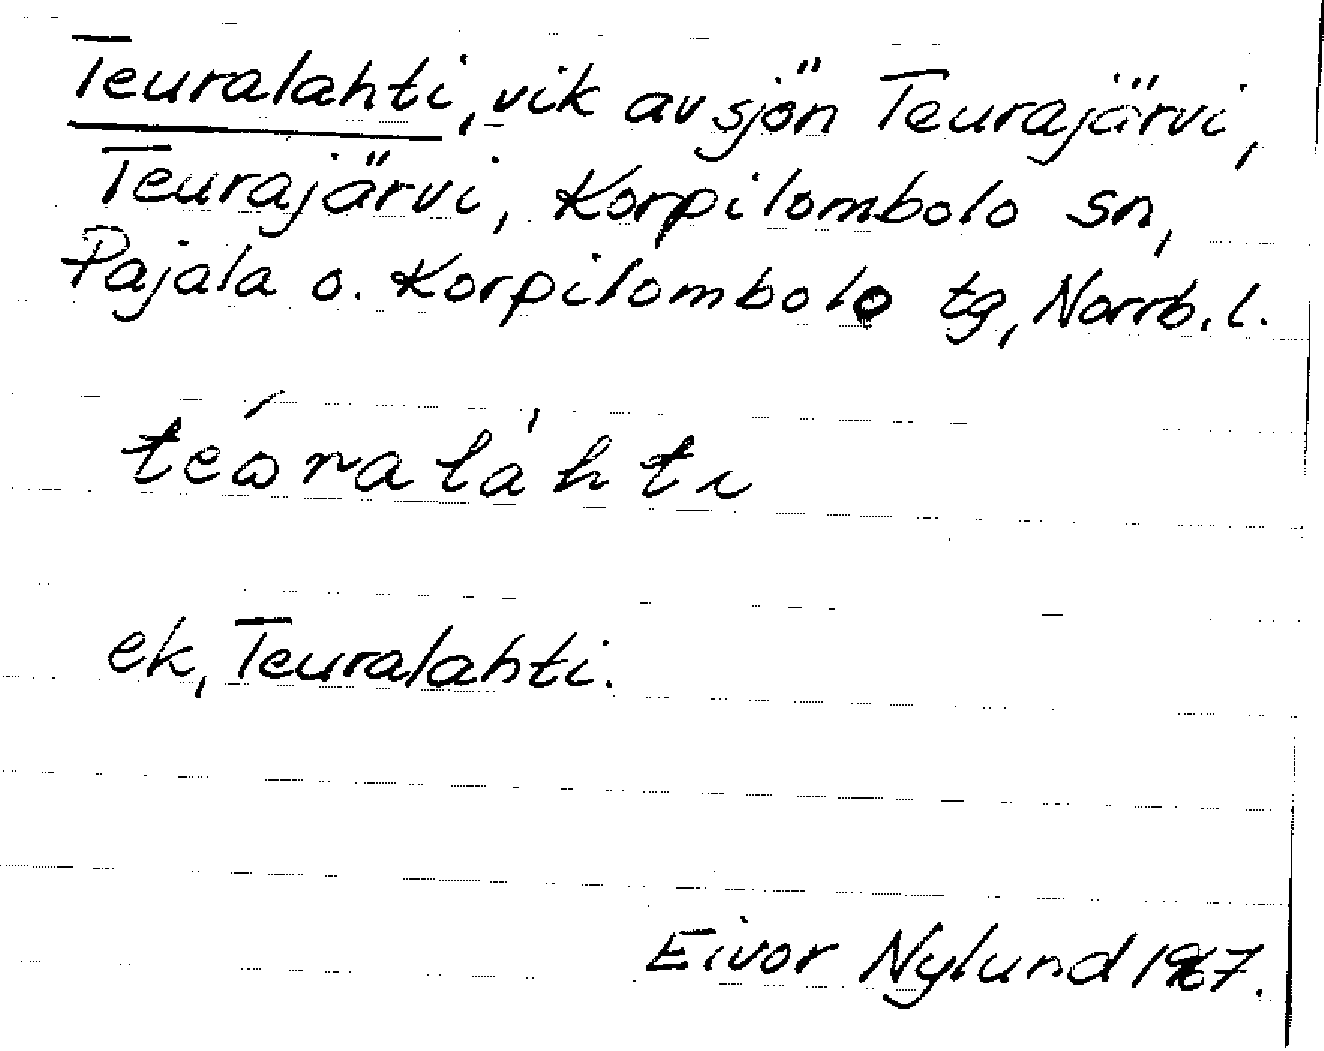 Teuralahti, vik av sjön Teurajärvi,
Teurajärvi, Korpilombolo sn,
Pajala o. Korpilombolo tg, Norrb. l.
teωralahti
ek, Teuralahti.
Eivor Nylund 1967.